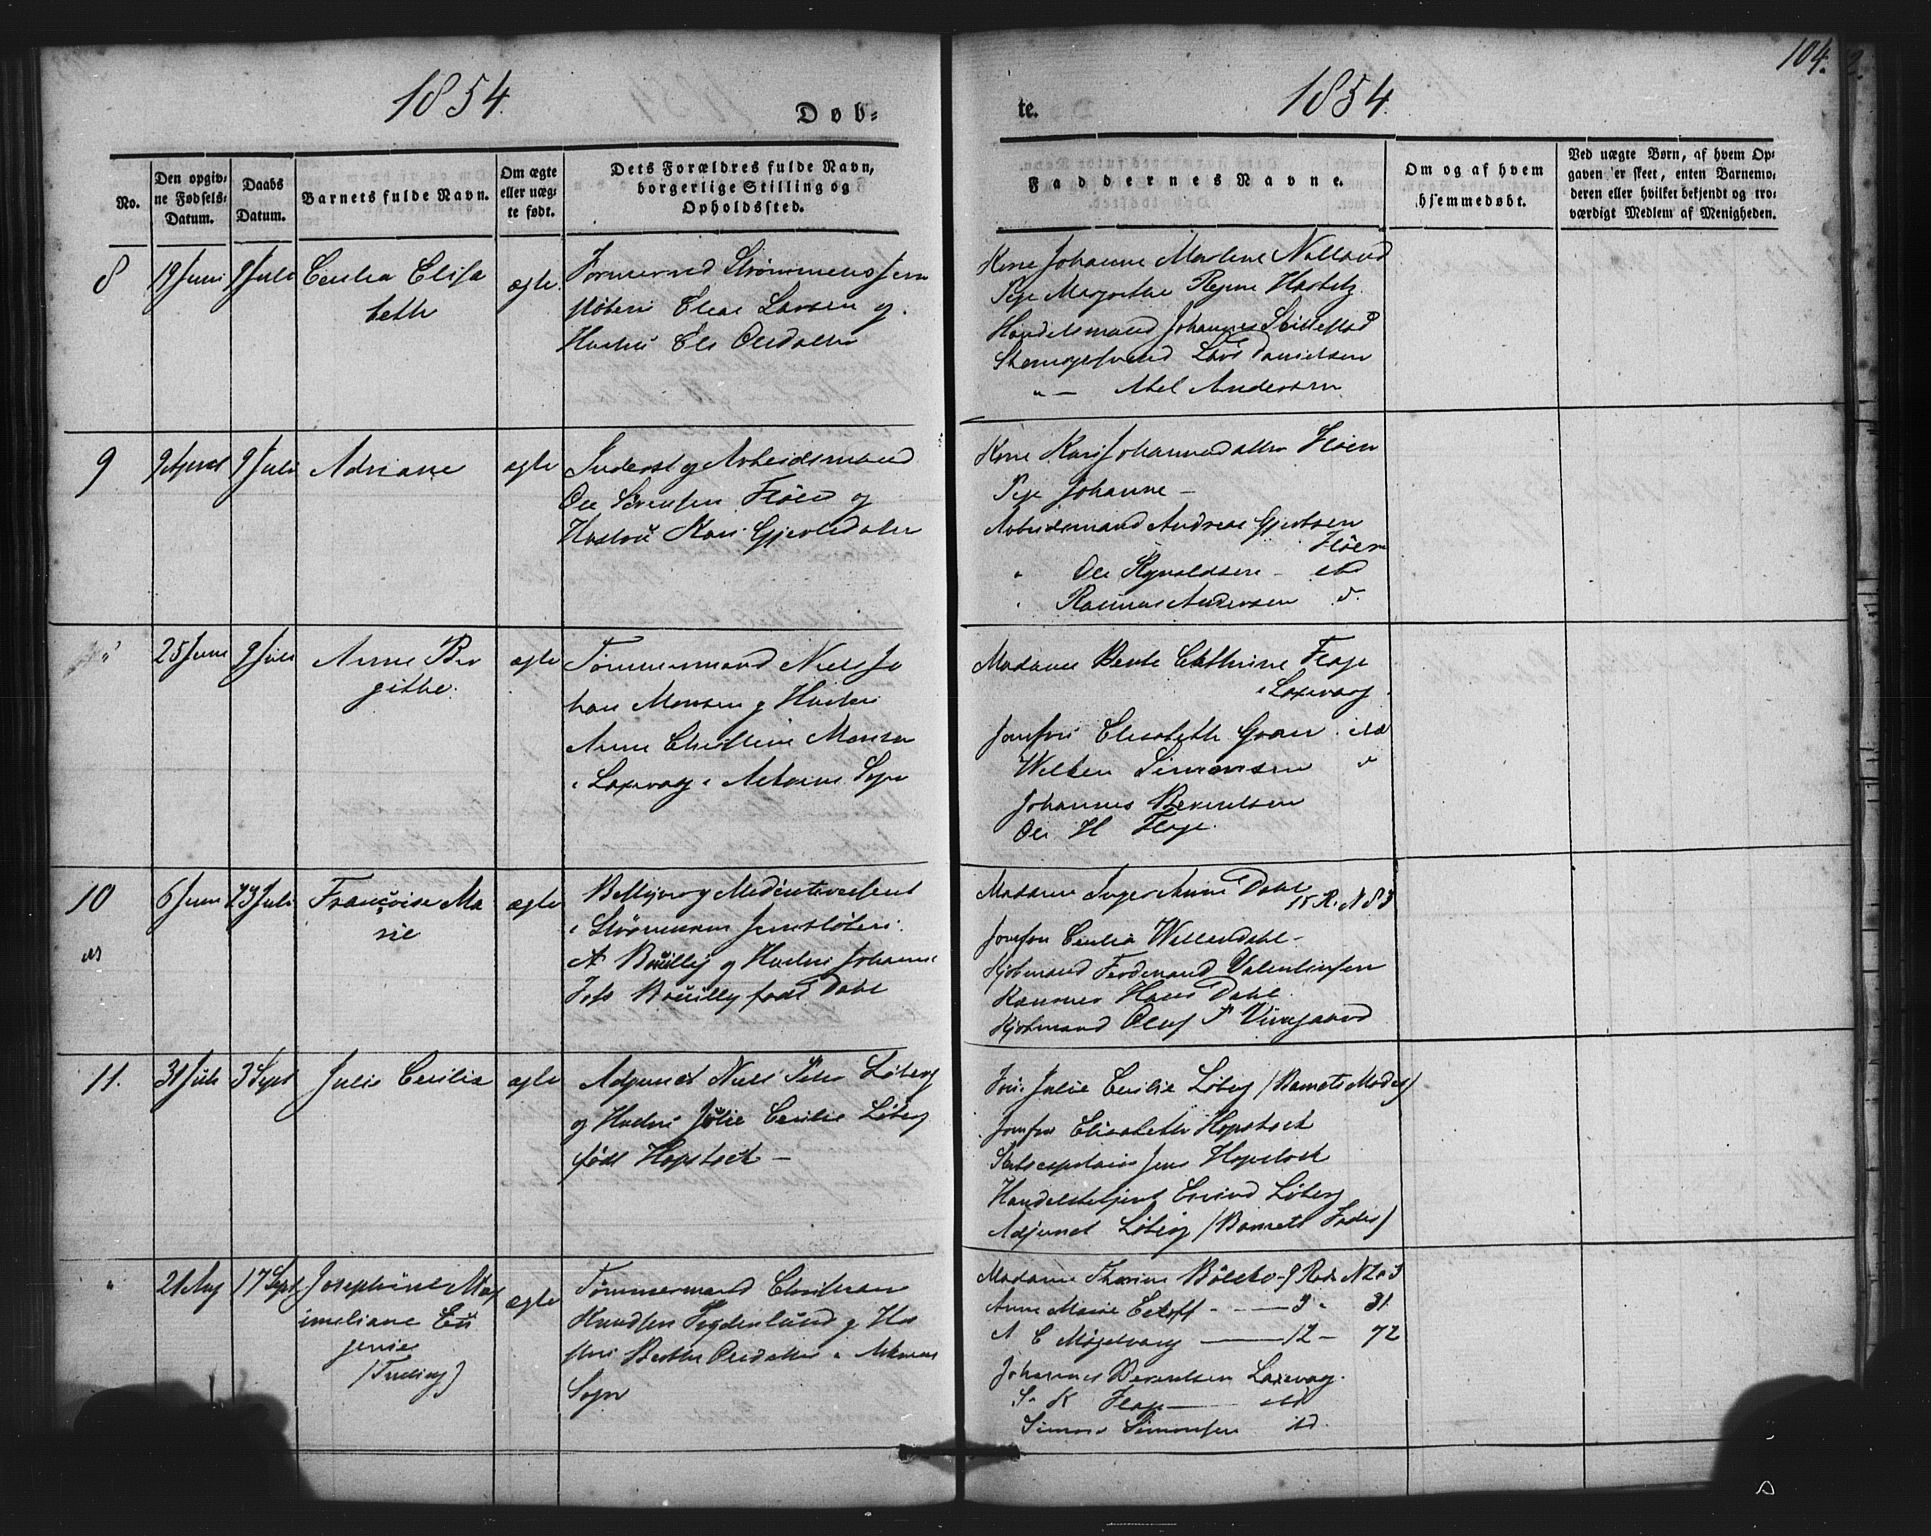 1854.
Døb-
No.
Den opgiv-
ne Fødsels-
Datum.
Daabs
Datum.
Barnets fulde Navn.
Om ægte
eller uæg-
te født.
Dets Forældres fulde Navn,
borgerlige Stilling og
Opholdssted.
8
19 Juni
9 Juli
Cecilia Elisa
beth
ægte
ved Strømmens Jern
støberi Larsen og
Hustru Olsdatter
9
9 Juli
Adriane
ægte
Inderst og Arbeidsmand
Ole Sørensen Fløen og
Hustru Kari Gjertsdatter
"
25 Juni
9 Juli
Anne Bir
gitte.
ægte
Tømmermand Niels Jo
han Monsen og Hustru
Anne Christine Monsen
i Laxevaag i Askøens Sogn
10
6 Juni
23 Juli
Françoise Ma
rie
ægte
Bestyrer og
i Strømmens Jernstøberi
A Bouilly og Hustru Johanne
Bouilly født Dahl
11.
31 Juli
3 Sept
Julie Cecilia
ægte
Adjunct Niels Peter Løberg
og Hustru Julie Cecilie Løberg
født Hopstock —
"
21 Aug
17 Sept
Josephine Max
imiliane Eu
genie
(Tvilling)
ægte
Tømmermand Christian
Knudsen og Hu
stru Berthe Olsdatter i Askøens
Sogn
1854.
104.
te.
Faddernes Navne.
Om og af hvem
hjemmedøbt.
Ved uægte Børn, af hvem Op-
gaven er skeet, enten Barnemo-
deren eller hvilket bekjendt og tro-
værdigt Medlem af Menigheden.
Kone Johanne Marlene Natland
Pige Margrethe
Handelsmand Johannes
Lars Danielsen
" — Abel Andersen
Kone Kari Johannesdatter Fløen
Pige Johanne —
Arbeidsmand Andreas Gjertsen
Fløen
" Ole
" Rasmus Andersen d.
Madame Bente Cathrine Flage
i Laxevaag
Jomfru Elisabeth Gran
Simonsen
Johannes Berentsen
Ole H Flage.
Madame Inger Anne Dahl
15 R. N 83
Jomfru Cecilia Willendahl —
Kjøbmand Ferdinand Valentinsen
Hans Dahl.
Kjøbmand Oluf P
Fru Julie Cecilie Løberg (Barnets Moder)
Jomfru Elisabeth Hopstock
Jens Hopstock
Løberg
Adjunct Løberg (Barnets Fader)
Madame 9 Rode N 203
Anne Marie — 3 - 31
A C — 12 — 72
Johannes Berentsen Laxevaag.
S. K Flage
Simon Simonsen